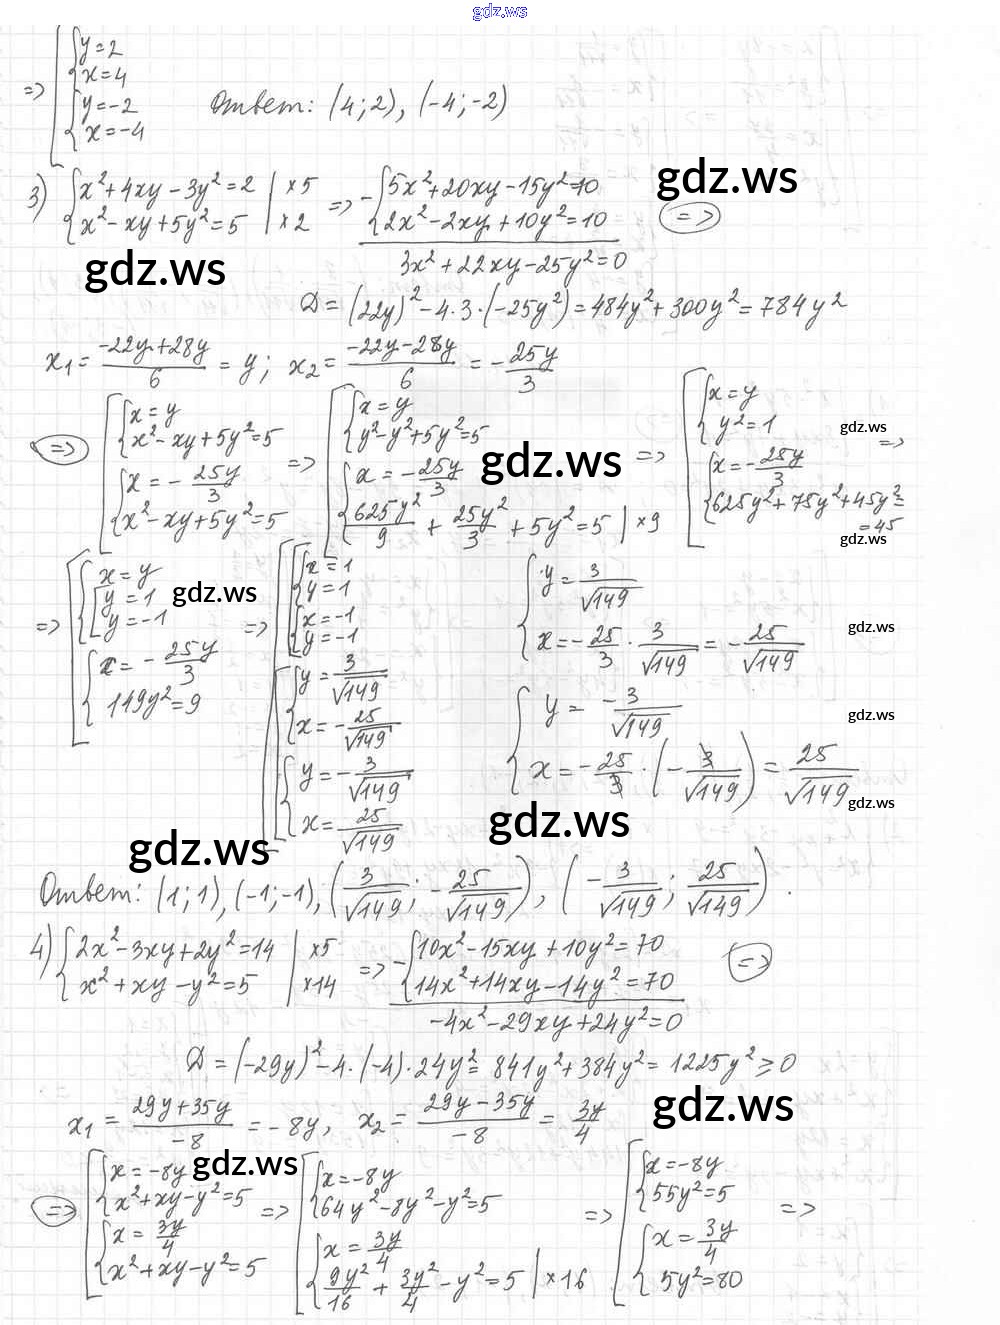 gdz.ws
=> [ { y=2
x=4
{ y=-2
x=-4
Ответ: (4;2), (-4;-2)
3) { x²+4xy-3y²=2 | ×5
x²-xy+5y²=5 | ×2
=> - { 5x²+20xy-15y²=10
2x²-2xy+10y²=10
3x²+22xy-25y²=0
=>
gdz.ws
gdz.ws
D=(22y)²-4·3·(-25y²)=484y²+300y²=784y²
x₁=(-22y+28y)/6=y; x₂=(-22y-28y)/6=-25y/3
=> [ { x=y
x²-xy+5y²=5
{ x=-25y/3
x²-xy+5y²=5
=> [ { x=y
y²-y²+5y²=5
{ x=-25y/3
625y²/9+25y²/3+5y²=5 | ×9
=> [ { x=y
y²=1
{ x=-25y/3
625y²+75y²+45y²=
=45
=>
gdz.ws
gdz.ws
gdz.ws
=> [ { x=y
[ y=1
y=-1
{ x=-25y/3
149y²=9
gdz.ws
=> [ [ { x=1
y=1
{ x=-1
y=-1
[ { y=3/√149
x=-25/√149
{ y=-3/√149
x=25/√149
{ y=3/√149
x=-25/3·3/√149=-25/√149
{ y=-3/√149
x=-25/3·(-3/√149)=25/√149
gdz.ws
gdz.ws
gdz.ws
gdz.ws
gdz.ws
Ответ: (1;1), (-1;-1), (3/√149; -25/√149), (-3/√149; 25/√149).
4) { 2x²-3xy+2y²=14 | ×5
x²+xy-y²=5 | ×14
=> - { 10x²-15xy+10y²=70
14x²+14xy-14y²=70
-4x²-29xy+24y²=0
=>
D=(-29y)²-4·(-4)·24y²=841y²+384y²=1225y²≥0
x₁=(29y+35y)/-8=-8y, x₂=(29y-35y)/-8=3y/4
gdz.ws
gdz.ws
=> [ { x=-8y
x²+xy-y²=5
{ x=3y/4
x²+xy-y²=5
=> [ { x=-8y
64y²-8y²-y²=5
{ x=3y/4
9y²/16+3y²/4-y²=5 | ×16
=> [ { x=-8y
55y²=5
{ x=3y/4
5y²=80
=>